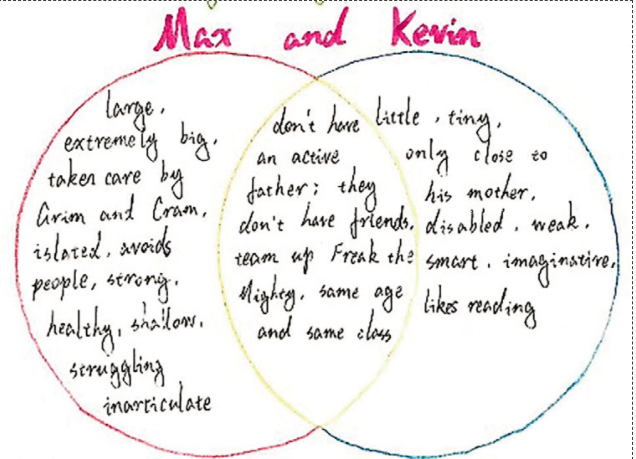 Max and Kevin
large,
extremely big,
taken care by
Grim and Cram,
islated, avoids
people, strong,
healthy, shallow,
struggling
inarticulate
don't have
an active
father; they
don't have friends,
team up Freak the
Mighty, same age
and same class
little, tiny,
only close to
his mother,
disabled, weak,
smart, imaginative,
likes reading